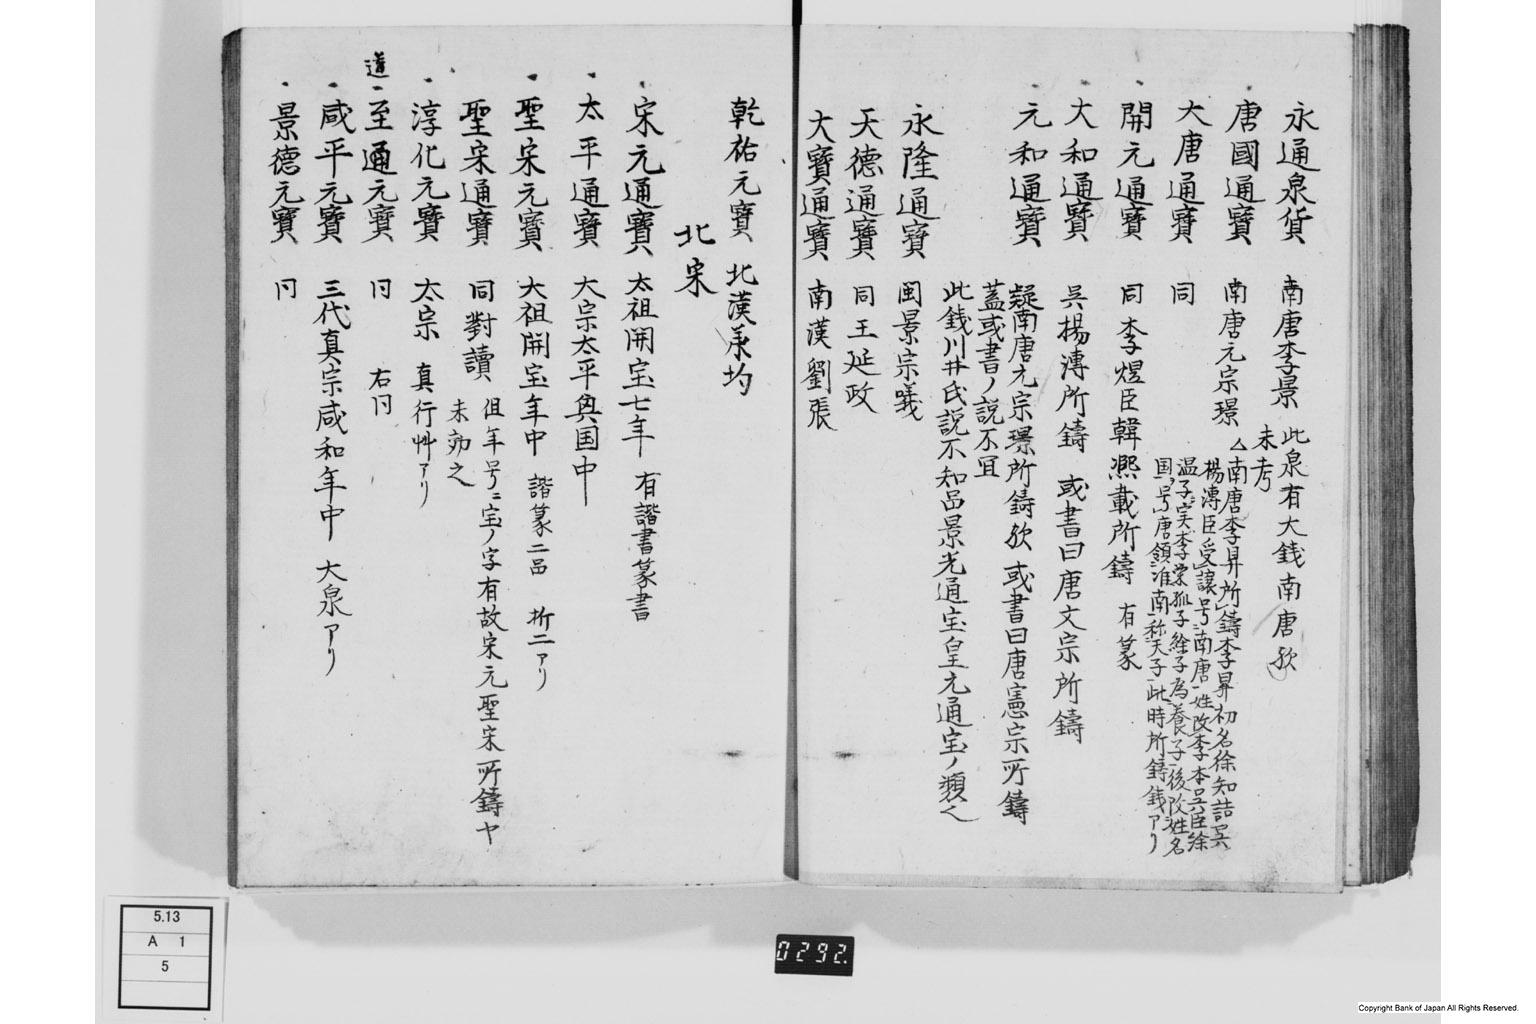 永通泉貨 南唐李景 此泉有大銭南唐欤
未考
唐國通寶 南唐元宗璟 △南唐李昇所鑄李昇初名徐知誥呉
楊溥臣受譲号南唐姓改李本呉臣徐
温子実李榮孤子徐子為養子後改姓名
国号唐領淮南称天子此時所鋳銭アリ
大唐通寶 同
開元通寶 同 李煜臣韓熈載所鑄 有篆
大和通寶 呉楊溥所鑄 或書曰唐文宗所鑄
元和通寶 疑南唐元宗璟所鋳欤 或書曰唐憲宗所鑄
蓋或書ノ説不冝
此銭川井氏説不知品景光通宝皇元通宝ノ類之
永隆通寶 閩景宗曦
天德通寶 同王延政
大寶通寶 南漢劉張
乾祐元寶 北漢承均
北宋
宋元通寶 太祖開宝七年 有諧書篆書
太平通寶 大宗太平奥国中
聖宋元寶 大祖開宝年中 諧篆二品 折二アリ
聖宋通寶 同對讀 但年号ニ宝ノ字有故宋元聖宋所鑄ヤ
未効之
淳化元寶 太宗 真行艸アリ
道
至通元寶 同 右同
咸平元寶 三代真宗咸和年中 大泉アリ
景德元寶 同
5.13
A 1
5
0292.
Copyright Bank of Japan All Rights Reserved.